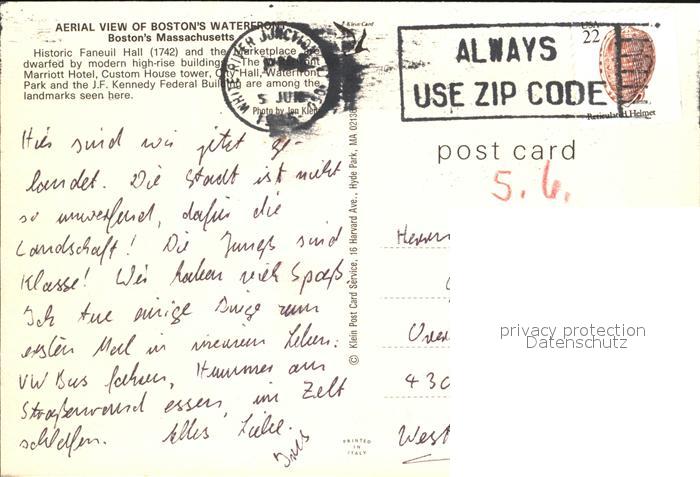 AERIAL VIEW OF BOSTON'S WATERFRONT
Boston's Massachusetts
Historic Faneuil Hall (1742) and the Marketplace are
dwarfed by modern high-rise buildings. The
Marriott Hotel, Custom House tower, City Hall, Waterfront
Park and the J.F. Kennedy Federal Building are among the
landmarks seen here.
Photo by Jon Klein
A Klein Card
WHITE RIVER JUNCTION
5 JUN
ALWAYS
USE ZIP CODE
USA
22
Reticulated Helmet
post card
5.6.
Hier sind wir jetzt ge-
landet. Die Stadt ist nicht
so umwerfend, dafür die
Landschaft! Die Jungs sind
Klasse! Wir haben viel Spaß.
Ich tue einige Dinge zum
ersten Mal in meinem Leben:
VW Bus fahren, Hummer am
Straßenrand essen, im Zelt
schlafen. Alles Liebe.
© Klein Post Card Service, 16 Harvard Ave., Hyde Park, MA 02136
PRINTED
IN
ITALY
Herrn
430
West
privacy protection
Datenschutz